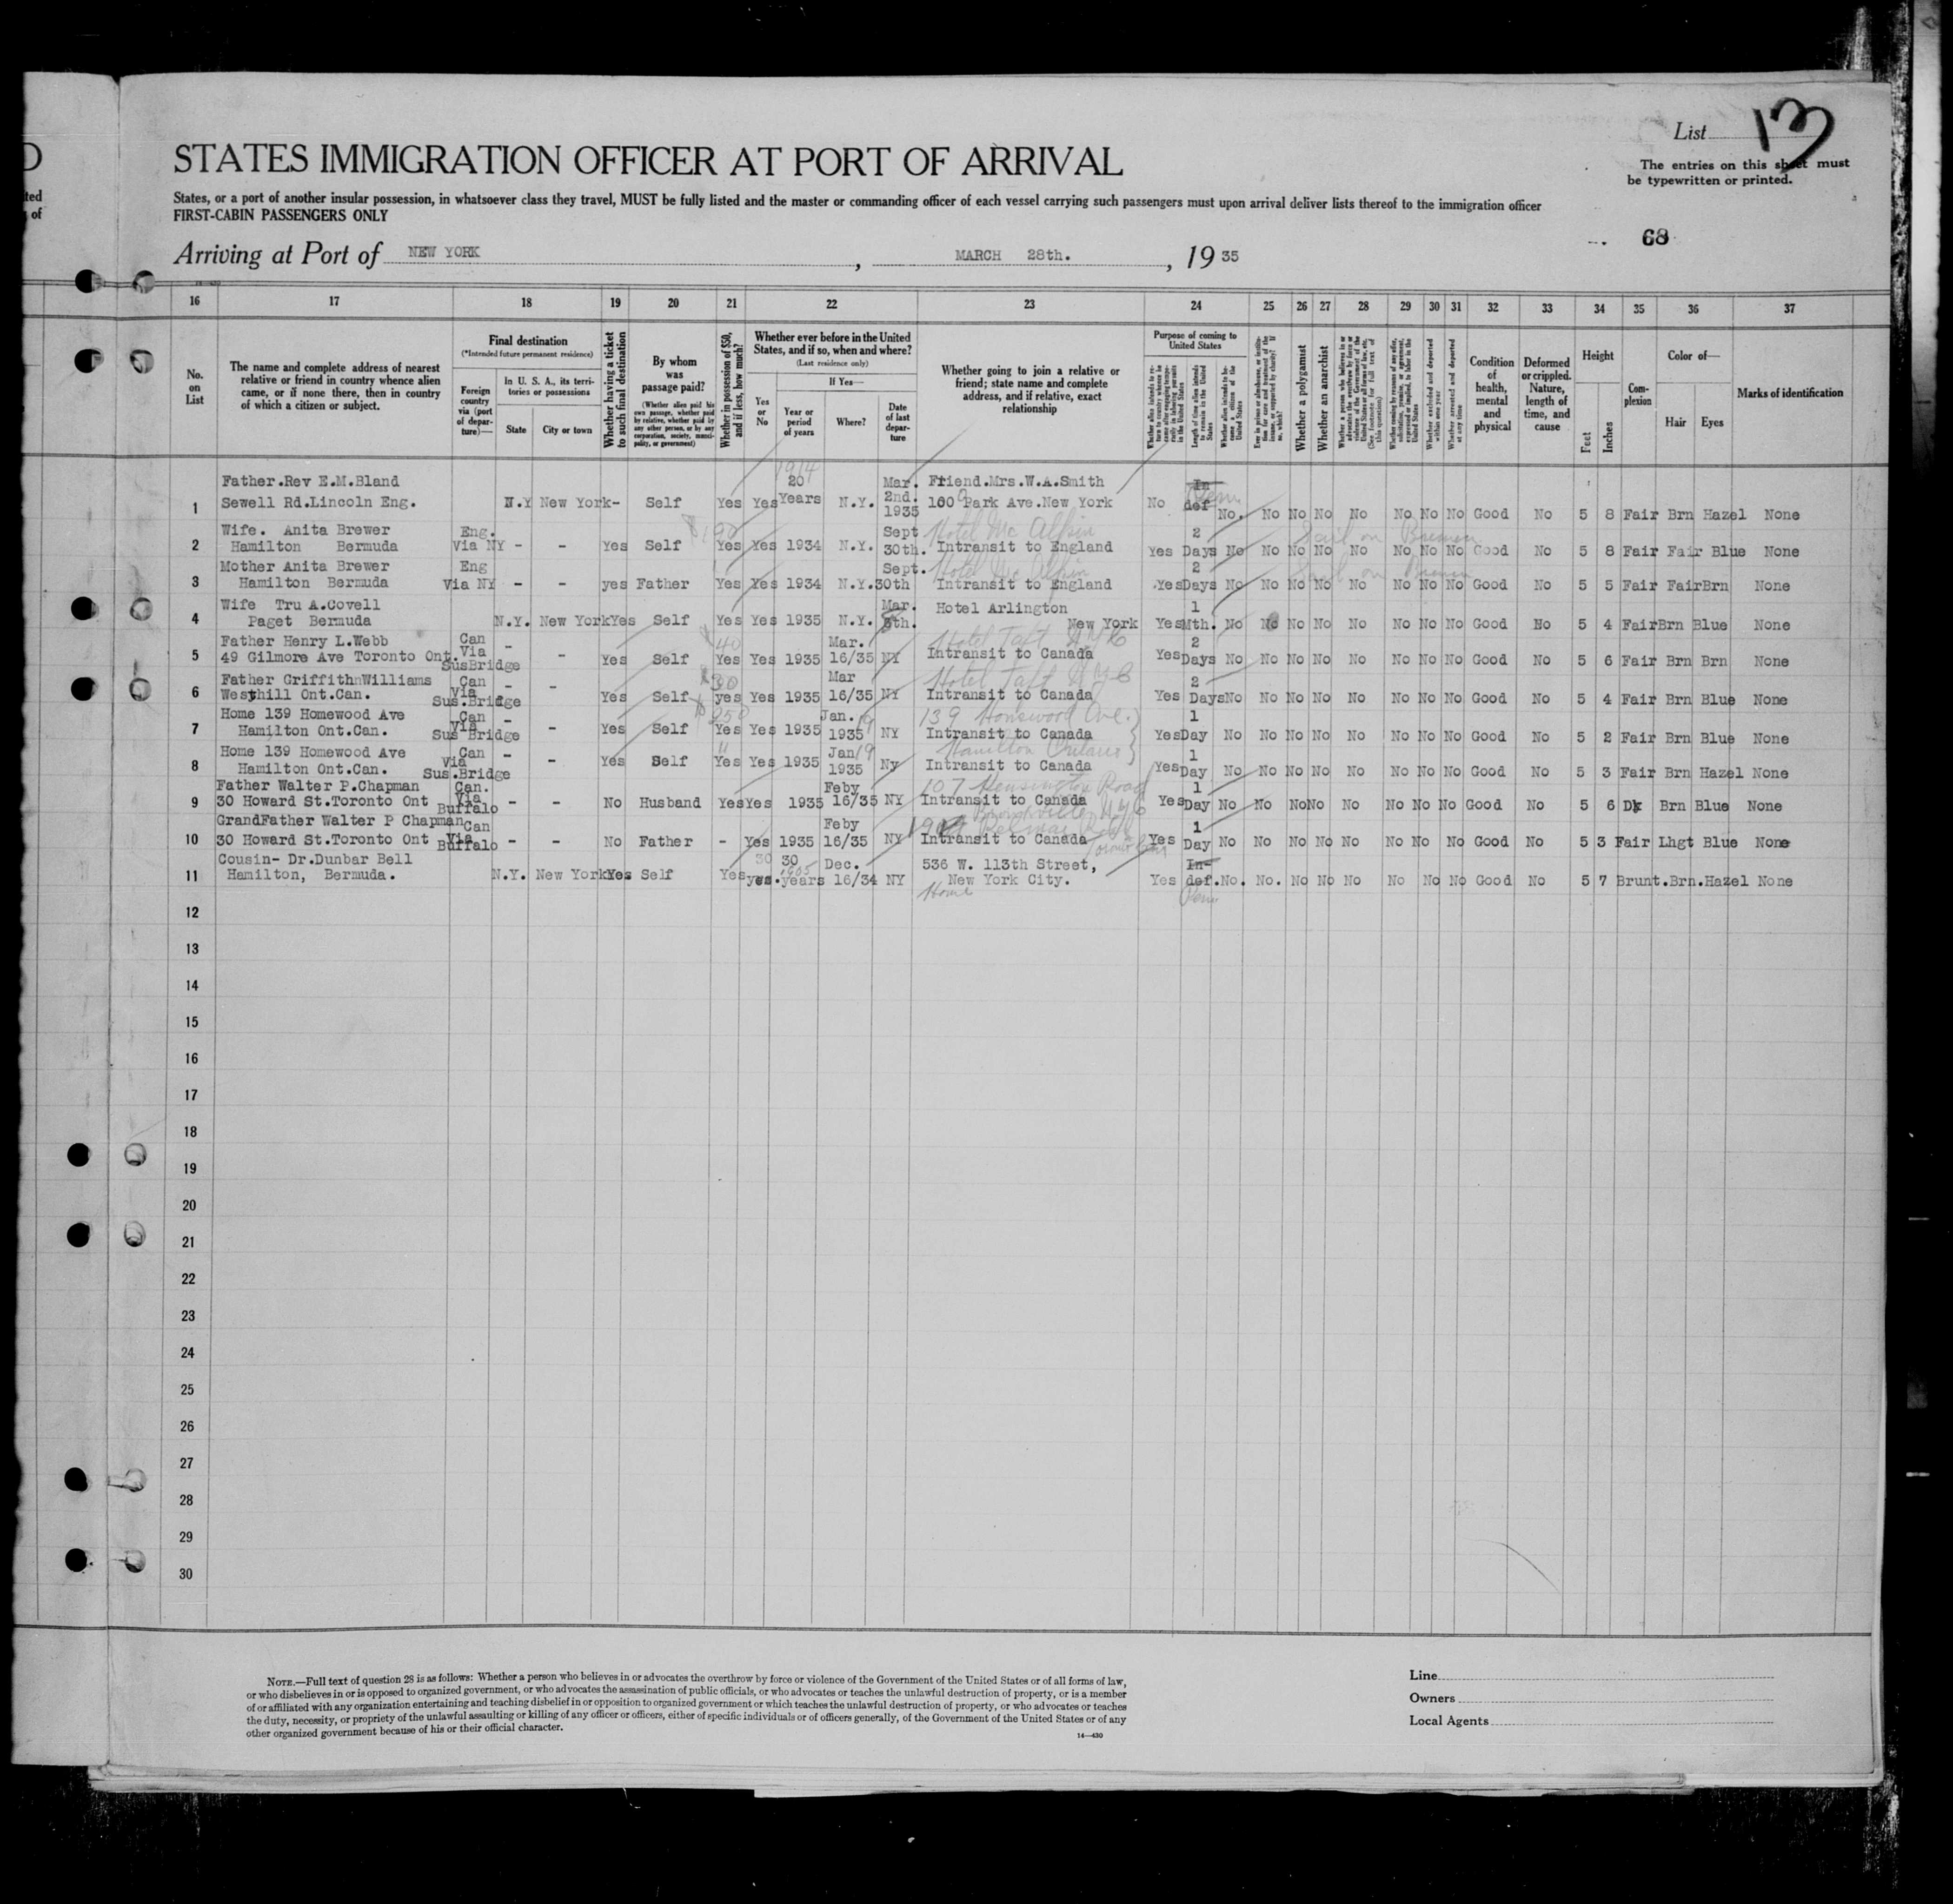 D
ted
of
List 13
STATES IMMIGRATION OFFICER AT PORT OF ARRIVAL
The entries on this sheet must
be typewritten or printed.
States, or a port of another insular possession, in whatsoever class they travel, MUST be fully listed and the master or commanding officer of each vessel carrying such passengers must upon arrival deliver lists thereof to the immigration officer
FIRST-CABIN PASSENGERS ONLY
68
Arriving at Port of NEW YORK , MARCH 28th. , 19 35
16 17 18 19 20 21 22 23 24 25 26 27 28 29 30 31 32 33 34 35 36 37
No. on List
The name and complete address of nearest relative or friend in country whence alien came, or if none there, then in country of which a citizen or subject.
Final destination
(*Intended future permanent residence)
Foreign country via (port of departure)—
In U. S. A., its territories or possessions
State
City or town
Whether having a ticket to such final destination
By whom was passage paid?
(Whether alien paid his own passage, whether paid by relative, whether paid by any other person, or by any corporation, society, municipality, or government)
Whether in possession of $50, and if less, how much?
Whether ever before in the United States, and if so, when and where?
(Last residence only)
Yes or No
If Yes—
Year or period of years
Where?
Date of last departure
Whether going to join a relative or friend; state name and complete address, and if relative, exact relationship
Purpose of coming to United States
Length of time alien intends to remain in the United States
Whether alien intends to become a citizen of the United States
Whether a polygamist
Whether an anarchist
Whether excluded and deported within one year
Whether arrested and deported at any time
Condition of health, mental and physical
Deformed or crippled. Nature, length of time, and cause
Height
Feet
Inches
Complexion
Color of—
Hair
Eyes
Marks of identification
1914
Father.Rev E.M.Bland 20 Mar. Friend.Mrs.W.A.Smith In
1 Sewell Rd.Lincoln Eng. N.Y New York- Self Yes Yes Years N.Y. 2nd. 1935 1000 Park Ave.New York No def No. No No No No No No No Good No 5 8 Fair Brn Hazel None
Wife. Anita Brewer Eng. Sept Hotel Mc Alpin 2 Sail on Bremen
2 Hamilton Bermuda Via NY - - Yes Self Yes Yes 1934 N.Y. 30th. Intransit to England Yes Days No No No No No No No No Good No 5 8 Fair Fair Blue None
Mother Anita Brewer Eng Sept. Hotel Mc Alpin 2 Sail on Bremen
3 Hamilton Bermuda Via NY - - yes Father Yes Yes 1934 N.Y. 30th Intransit to England Yes Days No No No No No No No No Good No 5 5 Fair Fair Brn None
Wife Tru A.Covell Mar. Hotel Arlington 1
4 Paget Bermuda N.Y. New York Yes Self Yes Yes 1935 N.Y. 8th. New York Yes Mth. No No No No No No No No Good No 5 4 Fair Brn Blue None
Father Henry L.Webb Can - 40 Mar. Hotel Taft NYC 2
5 49 Gilmore Ave Toronto Ont. Via SusBridge - Yes Self Yes Yes 1935 16/35 NY Intransit to Canada Yes Days No No No No No No No No Good No 5 6 Fair Brn Brn None
Father GriffithnWilliams Can - - 30 Mar Hotel Taft NYC 2
6 Westhill Ont.Can. Via Sus.Bridge Yes Self yes Yes 1935 16/35 NY Intransit to Canada Yes Days No No No No No No No No Good No 5 4 Fair Brn Blue None
Home 139 Homewood Ave Can - 250 Jan. 19 139 Homewood Ave. 1
7 Hamilton Ont.Can. Via Sus Bridge - Yes Self Yes Yes 1935 1935 NY Intransit to Canada Yes Day No No No No No No No No Good No 5 2 Fair Brn Blue None
Home 139 Homewood Ave Can - " Jan 19 Hamilton Ontario 1
8 Hamilton Ont.Can. Via Sus.Bridge - Yes Self Yes Yes 1935 1935 Ny Intransit to Canada Yes Day No No No No No No No No Good No 5 3 Fair Brn Hazel None
Father Walter P.Chapman Can. Feby 107 Kensington Road 1
9 30 Howard St.Toronto Ont Via Buffalo - - No Husband Yes Yes 1935 16/35 NY Intransit to Canada Bronxville NYC Yes Day No No No No No No No No Good No 5 6 Dk Brn Blue None
GrandFather Walter P Chapman Can Feby 1
10 30 Howard St.Toronto Ont Via Buffalo - - No Father - Yes 1935 16/35 NY Intransit to Canada Yes Day No No No No No No No No Good No 5 3 Fair Lhgt Blue None
Cousin- Dr.Dunbar Bell 30 30 1905 Dec. 536 W. 113th Street, In-
11 Hamilton, Bermuda. N.Y. New York Yes Self Yes yes. years 16/34 NY New York City. Yes def. No. No. No No No No No No Good No 5 7 Brunt. Brn. Hazel None
Home
12
13
14
15
16
17
18
19
20
21
22
23
24
25
26
27
28
29
30
NOTE.—Full text of question 28 is as follows: Whether a person who believes in or advocates the overthrow by force or violence of the Government of the United States or of all forms of law,
or who disbelieves in or is opposed to organized government, or who advocates the assassination of public officials, or who advocates or teaches the unlawful destruction of property, or is a member
of or affiliated with any organization entertaining and teaching disbelief in or opposition to organized government or which teaches the unlawful destruction of property, or who advocates or teaches
the duty, necessity, or propriety of the unlawful assaulting or killing of any officer or officers, either of specific individuals or of officers generally, of the Government of the United States or of any
other organized government because of his or their official character.
14—430
Line
Owners
Local Agents